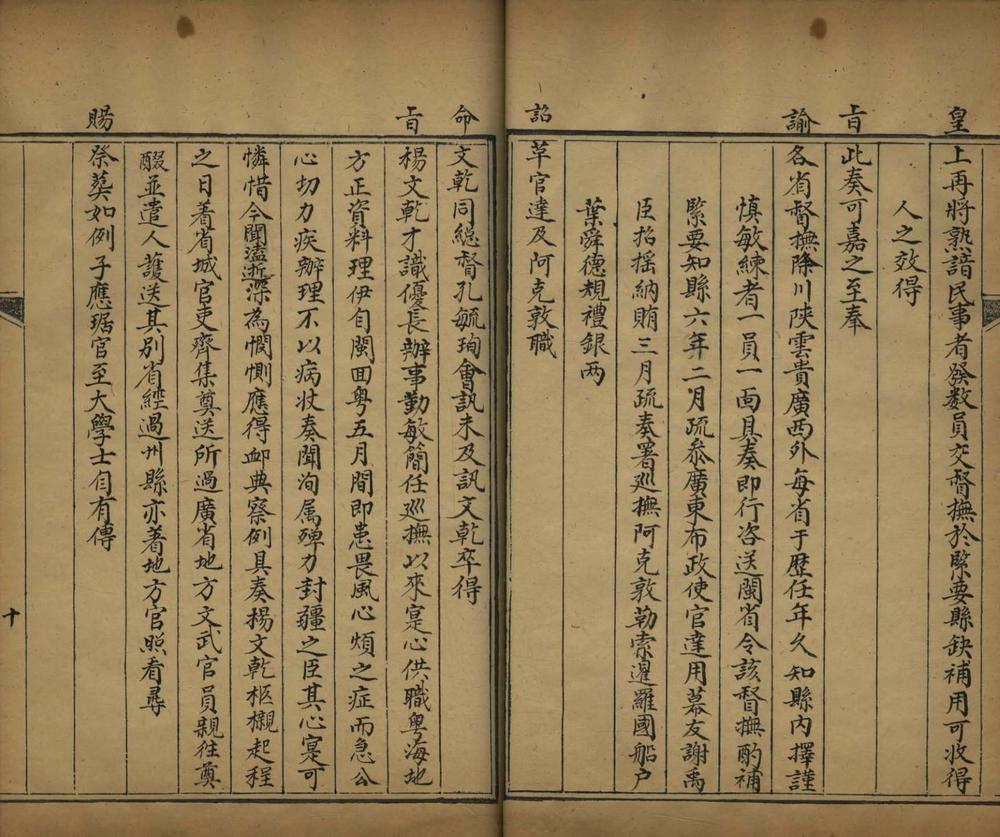 皇上再將熟諳民事者發数員交督撫於緊要縣缺補用可收得
人之效得
旨此奏可嘉之至奉
諭各省督撫除川陝雲貴廣西外每省于歴任年久知縣内擇謹
慎敏練者一員一面具奏即行咨送閩省令該督撫酌補
緊要知縣六年二月疏叅廣東布政使官達用幕友謝禹
臣招摇納賄三月疏奏署廵撫阿克敦勒索暹羅國船户
葉舜德規禮銀两
詔革官達及阿克敦職
命文乾同總督孔毓珣會訊未及訊文乾卒得
旨楊文乾才識優長辦事勤敏簡任廵撫以來寔心供職粤海地
方正資料理伊自閩囬粤五月間即患畏風心煩之症而急公
心切力疾辦理不以病狀奏聞洵属殫力封疆之臣其心寔可
憐惜今聞溘逝深為憫惻應得卹典察例具奏楊文乾柩櫬起程
之日着省城官吏齊集奠送所過廣省地方文武官員親往奠
醊並遣人護送其别省經過州縣亦著地方官照看尋
賜祭葬如例子應琚官至大學士自有傳
十